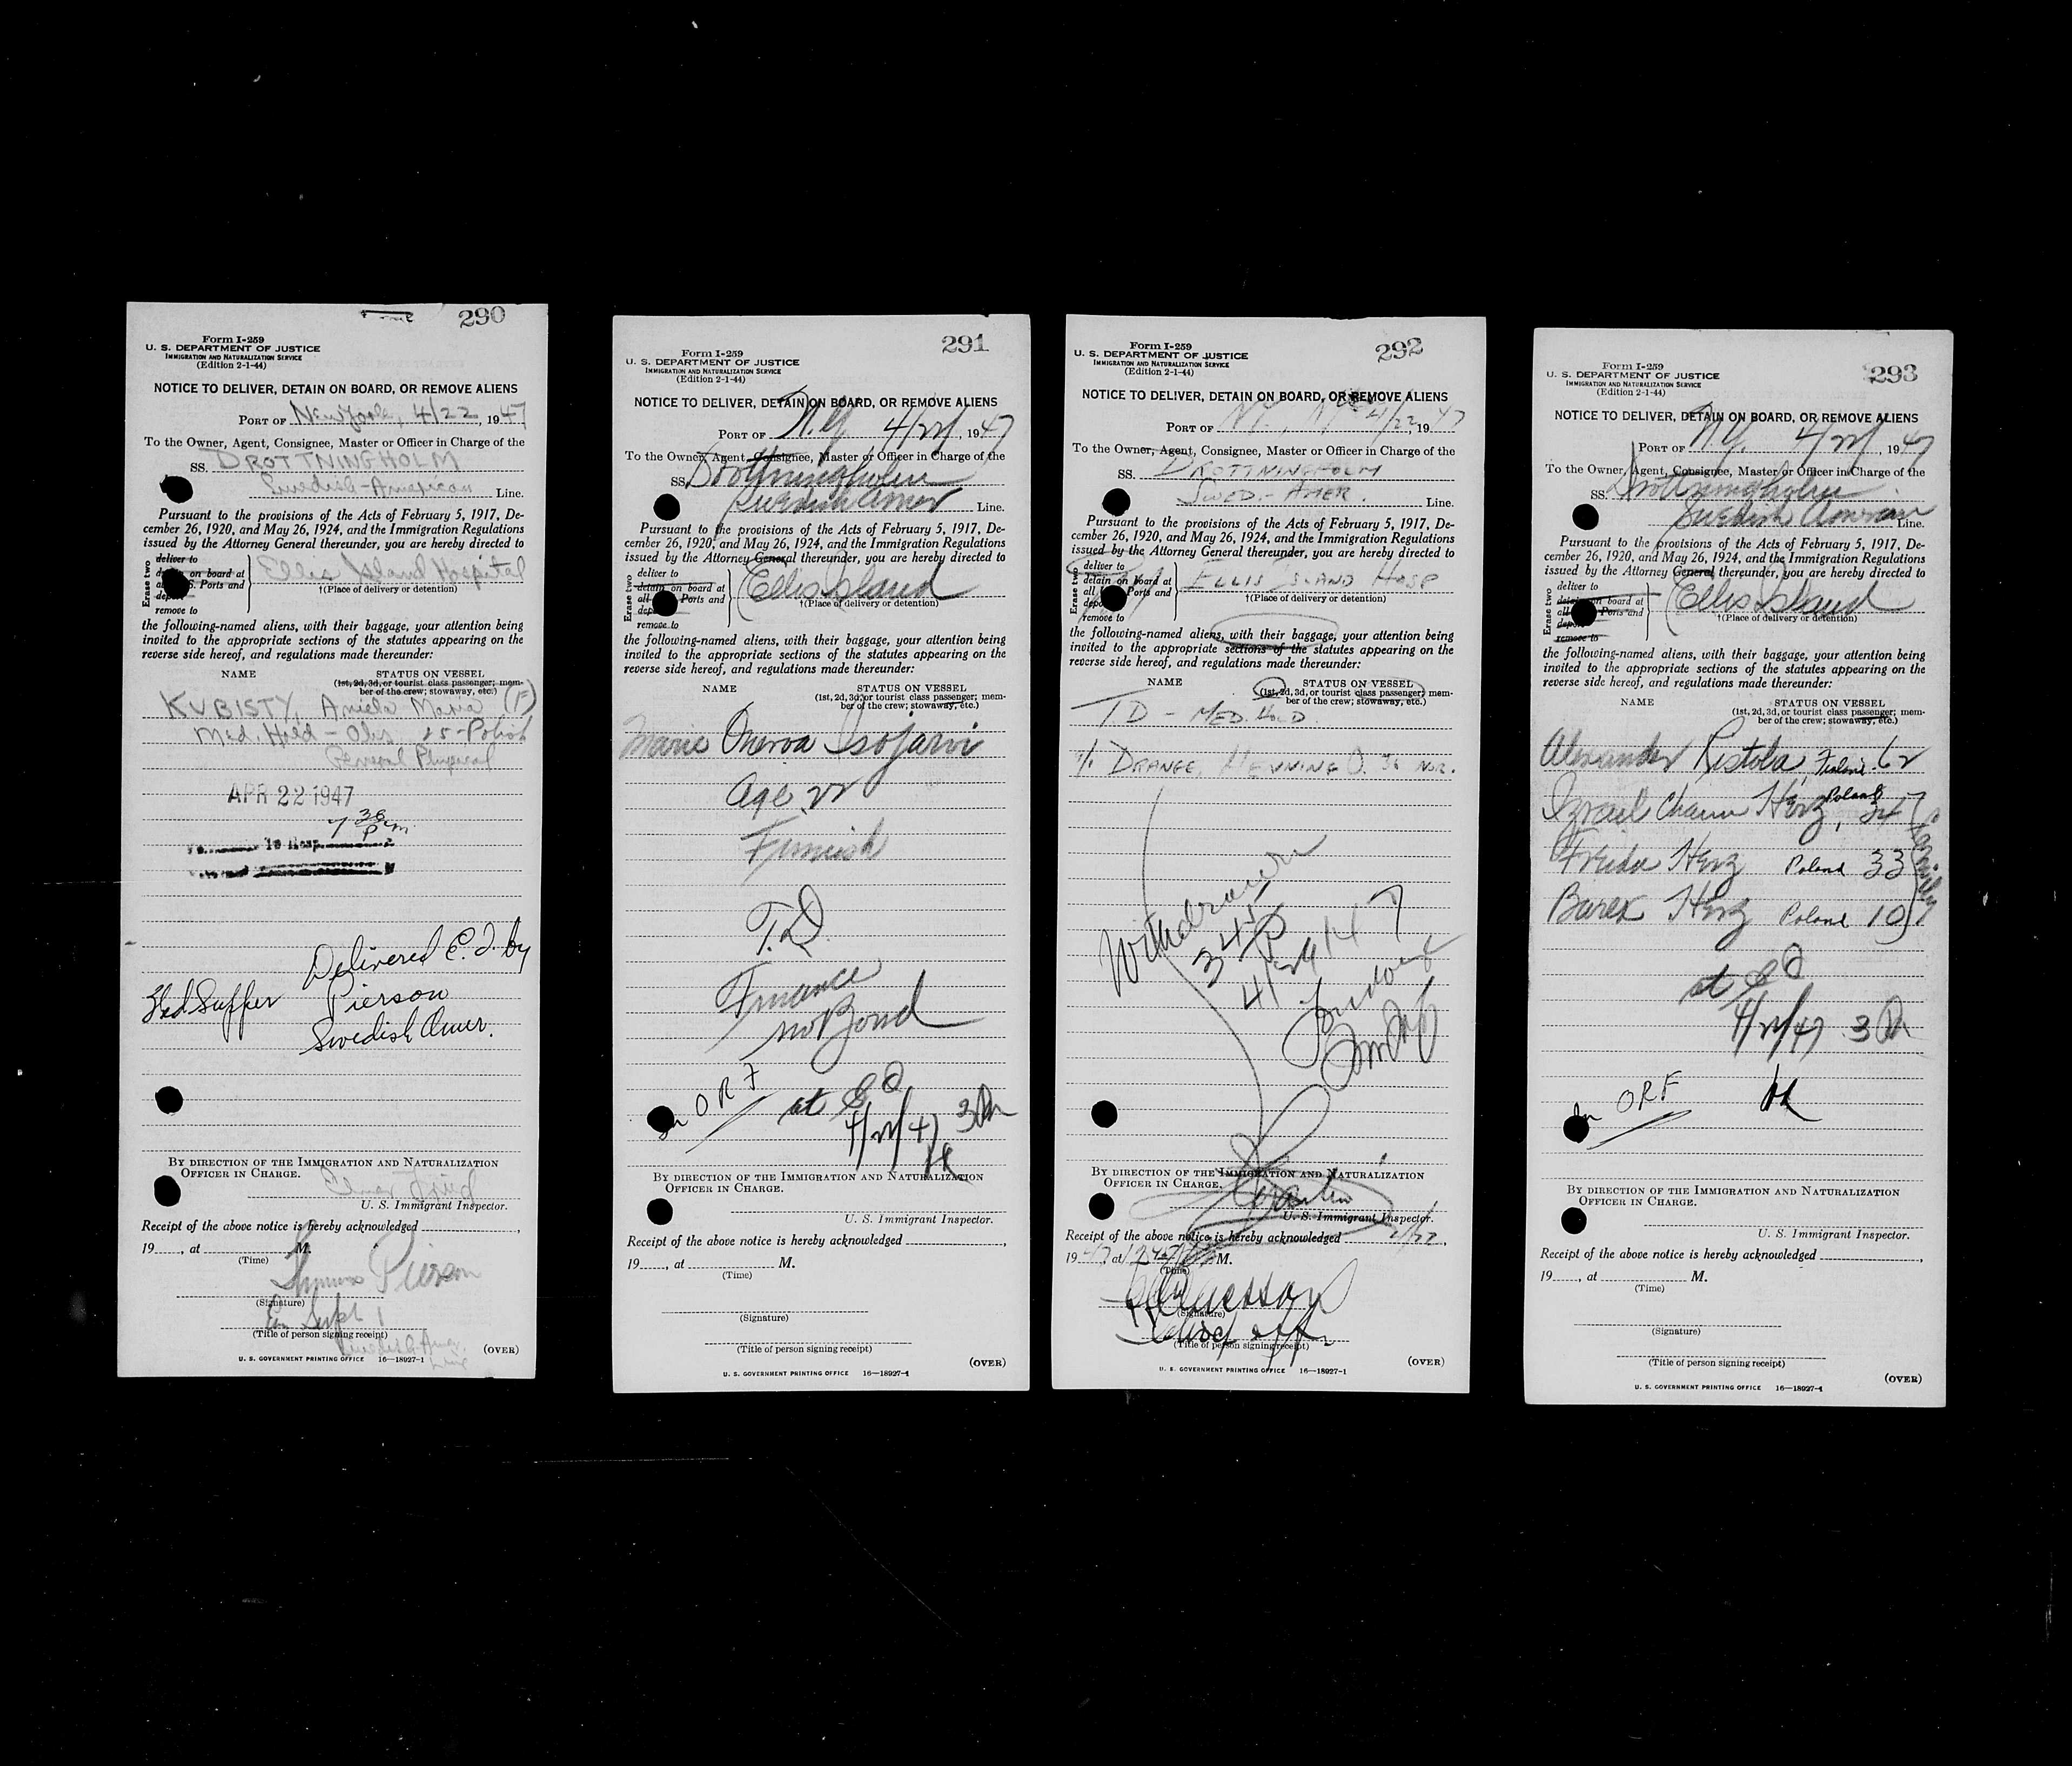 290
Form I-259
U. S. DEPARTMENT OF JUSTICE
IMMIGRATION AND NATURALIZATION SERVICE
(Edition 2-1-44)
NOTICE TO DELIVER, DETAIN ON BOARD, OR REMOVE ALIENS
PORT OF New York, 4/22, 1947
To the Owner, Agent, Consignee, Master or Officer in Charge of the
SS. DROTTNINGHOLM
Swedish-American Line.
Pursuant to the provisions of the Acts of February 5, 1917, De-
cember 26, 1920, and May 26, 1924, and the Immigration Regulations
issued by the Attorney General thereunder, you are hereby directed to
Erase two
deliver to
on board at
S. Ports and
remove to
Ellis Island Hospital
†(Place of delivery or detention)
the following-named aliens, with their baggage, your attention being
invited to the appropriate sections of the statutes appearing on the
reverse side hereof, and regulations made thereunder:
NAME STATUS ON VESSEL
(1st, 2d, 3d, or tourist class passenger; mem-
ber of the crew; stowaway, etc.)
KUBISTY, Aniela Maria (F)
Med. Hold - Obs 25-Polish
General Physical
APR 22 1947
7 30 Pm
To Hosp.
Delivered E. I. by
Pierson
Swedish Amer.
BY DIRECTION OF THE IMMIGRATION AND NATURALIZATION
OFFICER IN CHARGE.
U. S. Immigrant Inspector.
Receipt of the above notice is hereby acknowledged
19, at M.
(Time)
Pierson
(Signature)
(Title of person signing receipt)
Swedish Amer.
Line
(OVER)
U. S. GOVERNMENT PRINTING OFFICE 16—18927-1
291
Form I-259
U. S. DEPARTMENT OF JUSTICE
IMMIGRATION AND NATURALIZATION SERVICE
(Edition 2-1-44)
NOTICE TO DELIVER, DETAIN ON BOARD, OR REMOVE ALIENS
PORT OF N.Y. 4/22/, 1947
To the Owner, Agent, Consignee, Master or Officer in Charge of the
SS. Drottningholm
Swedish Amer Line.
Pursuant to the provisions of the Acts of February 5, 1917, De-
cember 26, 1920, and May 26, 1924, and the Immigration Regulations
issued by the Attorney General thereunder, you are hereby directed to
Erase two
deliver to
detain on board at
all Ports and
remove to
Ellis Island
†(Place of delivery or detention)
the following-named aliens, with their baggage, your attention being
invited to the appropriate sections of the statutes appearing on the
reverse side hereof, and regulations made thereunder:
NAME STATUS ON VESSEL
(1st, 2d, 3d, or tourist class passenger; mem-
ber of the crew; stowaway, etc.)
Marie Onerva Isojarvi
Age 22
Finnish
T.D.
Finance
no Bond
ORF at
4/22/47
BY DIRECTION OF THE IMMIGRATION AND NATURALIZATION
OFFICER IN CHARGE.
U. S. Immigrant Inspector.
Receipt of the above notice is hereby acknowledged
19, at M.
(Time)
(Signature)
(Title of person signing receipt)
(OVER)
U. S. GOVERNMENT PRINTING OFFICE 16—18927-1
292
Form I-259
U. S. DEPARTMENT OF JUSTICE
IMMIGRATION AND NATURALIZATION SERVICE
(Edition 2-1-44)
NOTICE TO DELIVER, DETAIN ON BOARD, OR REMOVE ALIENS
PORT OF N.Y., 4/22, 1947
To the Owner, Agent, Consignee, Master or Officer in Charge of the
SS. DROTTNINGHOLM
SWED.-AMER. Line.
Pursuant to the provisions of the Acts of February 5, 1917, De-
cember 26, 1920, and May 26, 1924, and the Immigration Regulations
issued by the Attorney General thereunder, you are hereby directed to
Erase two
deliver to
detain on board at
all Ports and
remove to
ELLIS ISLAND HOSP
†(Place of delivery or detention)
the following-named aliens, with their baggage, your attention being
invited to the appropriate sections of the statutes appearing on the
reverse side hereof, and regulations made thereunder:
NAME STATUS ON VESSEL
(1st, 2d, 3d, or tourist class passenger; mem-
ber of the crew; stowaway, etc.)
TD - MED. HOLD
DRANGE, HENNING O. 36 NOR.
Withdrawn
BY DIRECTION OF THE IMMIGRATION AND NATURALIZATION
OFFICER IN CHARGE.
U. S. Immigrant Inspector.
Receipt of the above notice is hereby acknowledged
1947, at M.
(Time)
(Signature)
Chief off.
(Title of person signing receipt)
(OVER)
U. S. GOVERNMENT PRINTING OFFICE 16—18927-1
293
Form I-259
U. S. DEPARTMENT OF JUSTICE
IMMIGRATION AND NATURALIZATION SERVICE
(Edition 2-1-44)
NOTICE TO DELIVER, DETAIN ON BOARD, OR REMOVE ALIENS
PORT OF N.Y. 4/22/, 1947
To the Owner, Agent, Consignee, Master or Officer in Charge of the
SS. Drottningholm
Swedish American Line.
Pursuant to the provisions of the Acts of February 5, 1917, De-
cember 26, 1920, and May 26, 1924, and the Immigration Regulations
issued by the Attorney General thereunder, you are hereby directed to
Erase two
deliver to
detain on board at
all Ports and
remove to
Ellis Island
†(Place of delivery or detention)
the following-named aliens, with their baggage, your attention being
invited to the appropriate sections of the statutes appearing on the
reverse side hereof, and regulations made thereunder:
NAME STATUS ON VESSEL
(1st, 2d, 3d, or tourist class passenger; mem-
ber of the crew; stowaway, etc.)
Alexander Ristola, 62
Izrael Chaim Herz, Poland 34
Freida Herz Poland 33
Barex Herz Poland 10
Family
at
4/22/47
ORF
BY DIRECTION OF THE IMMIGRATION AND NATURALIZATION
OFFICER IN CHARGE.
U. S. Immigrant Inspector.
Receipt of the above notice is hereby acknowledged
19, at M.
(Time)
(Signature)
(Title of person signing receipt)
(OVER)
U. S. GOVERNMENT PRINTING OFFICE 16—18927-1